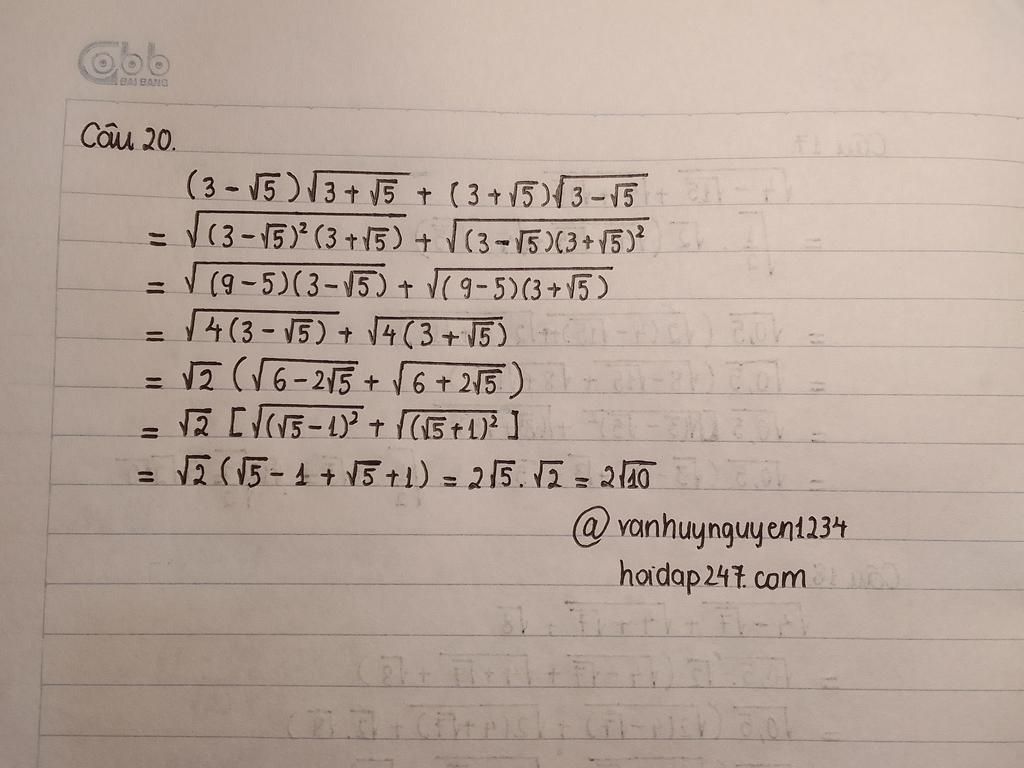 Cobb
BAI BANG
Câu 20.
(3 - √5)√(3 + √5) + (3 + √5)√(3 - √5)
= √((3 - √5)²(3 + √5)) + √((3 - √5)(3 + √5)²)
= √((9 - 5)(3 - √5)) + √((9 - 5)(3 + √5))
= √(4(3 - √5)) + √(4(3 + √5))
= √2 (√(6 - 2√5) + √(6 + 2√5))
= √2 [√((√5 - 1)²) + √((√5 + 1)²)]
= √2 (√5 - 1 + √5 + 1) = 2√5 . √2 = 2√10
@ vanhuynguyen1234
hoidap247.com